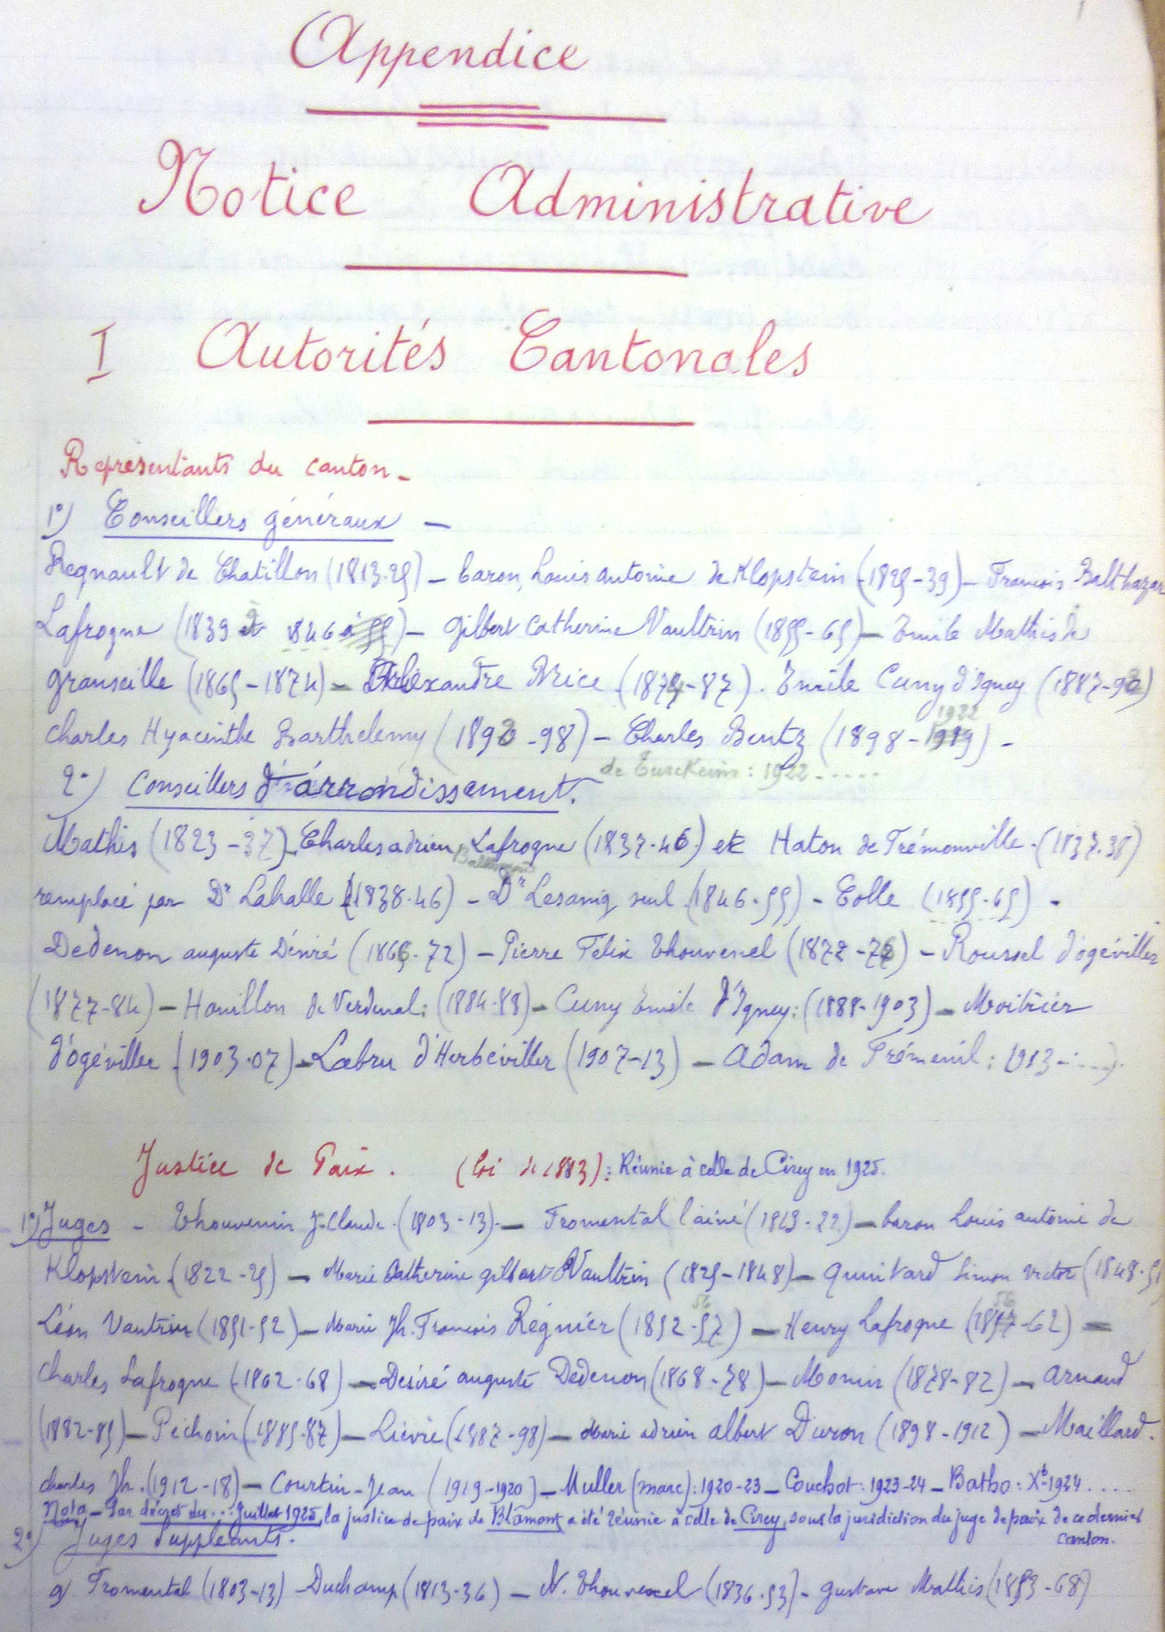 1
Appendice
Notice Administrative
I Autorités Cantonales
Représentants du canton -
1°) Conseillers généraux -
Regnault de Chatillon (1813-25) - baron, Louis antoine de Klopstein (1825-39) - François Balthazar
Lafrogne (1839 et 1846) - Gilbert Catherine Vaultrin (1855-65) - Emile Mathis de
Granseille (1865-1874) - Alexandre Brice (1874-87). Emile Cuny d'Igney (1887-92)
Charles Hyacinthe Barthelemy (1892-98) - Charles Bentz (1898-1919) -
1922
de Turckeim : 1922 .....
2°) Conseillers d'arrondissement.
Mathis (1823-37) - Charles adrien Lafrogne (1837-46) et Haton de Trémonville - (1837-38)
Balthazar
remplacé par Dr Lahalle (1838-46) - Dr Lesaing seul (1846-55) - Colle (1855-65) -
Dedenon auguste Désiré (1866-72) - Pierre Félix Thouvenel (1872-76) - Roussel d'ogéviller
(1877-84) - Houillon de Verdenal : (1884-88) - Cuny Emile d'Igney : (1888-1903) - Moitrier
d'ogéviller (1903-07) - Labru d'Herbéviller (1907-13) - Adam de Frémenil : 1913-....).
Justice de Paix. (loi de 1883) : Réunie à celle de Cirey en 1925.
1°) Juges - Thouvenin J-Claude - (1803-13) - Fromental l'ainé (1813-22) - baron Louis antoine de
Klopstein (1822-25) - Marie Catherine gilbert Vaultrin (1825-1848) - Quintard Simon Victor (1848-51)
Léon Vautrin (1851-52) - Marie Jh. François Régnier (1852-57) - Henry Lafrogne (1857-62) -
56 56
Charles Lafrogne (1862-68) - Désiré auguste Dedenon (1868-78) - Monin (1878-82) - Arnaud
(1882-85) - Péchoin (1885-87) - Lièvre (1887-98) - Marie adrien albert Duron (1898-1912) - Maillard.
Charles Jh. (1912-18) - Courtin-Jean (1919-1920) - Muller (marc) : 1920-23 - Couchot : 1923-24 - Batho : Xb-1924 ....
Nota - Par décret du ... Juillet 1925, la justice de paix de Blâmont a été réunie à celle de Cirey, sous la juridiction du juge de paix de ce dernier
canton.
2°) Juges suppléants.
a) Fromental (1803-13) - Duchamp (1813-36) - N. Thouvenel (1836-53) - gustave Mathis (1853-68)